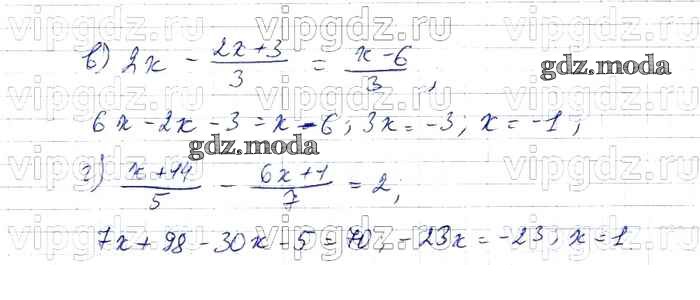 vipgdz.ru vipgdz.ru vipgdz.ru
в) 2x - (2x+3)/3 = (x-6)/3,
gdz.moda
vipgdz.ru vipgdz.ru vipgdz.ru
6x-2x-3=x-6; 3x=-3; x=-1;
gdz.moda
vipgdz.ru vipgdz.ru vipgdz.ru
г) (x+14)/5 - (6x+1)/7 = 2;
vipgdz.ru vipgdz.ru vipgdz.ru
7x+98-30x-5=70; -23x=-23; x=1.